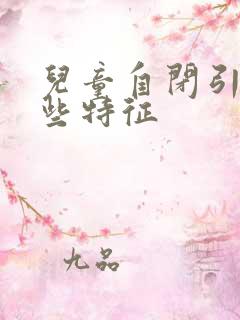 兒童自閉引
些特征
九品